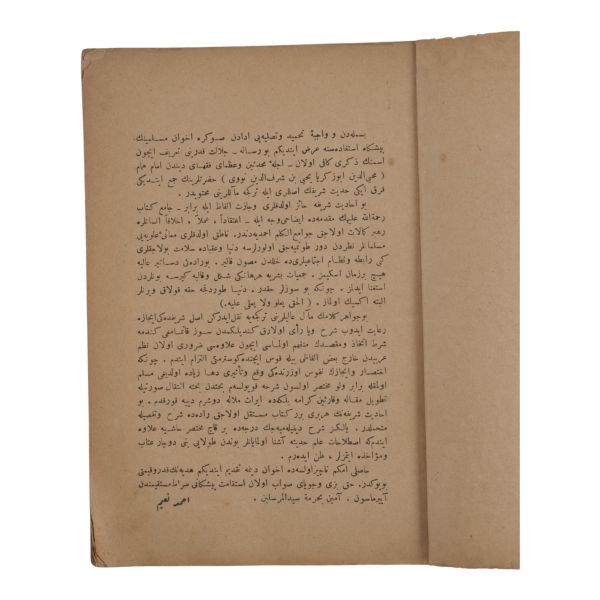 بسمله‌دن و واجبهٔ تحمید و تصلیه‌یی ادادن صوكره اخوان مسلمینك
پیشكاه استفاده‌سنه عرض ایتدیكم بو رساله . جلالت قدرینی تعریف ایچون
اسمنك ذكری كافی اولان . اجلهٔ محدثین و عظمای فقهای دیندن امام همام
( محیی‌الدین ابو زكریا یحیی بن شرف‌الدین نووی ) حضرتلرینك جمع ایتدیكی
قرق ایكی حدیث شریفك اصللری ایله تركجه مآللرینی محتویدر .
بو احادیث شریفه حائز اولدقلری وجازت الفاظ ایله برابر - جامع كتاب
رحمة الله علیهك مقدمه‌ده ایضاحی وجه ایله - اعتقاداً ، عملاً ، اخلاقاً انسانلره
رهبر كمالات اولاجق جوامع‌الكلم احمدیه‌دندر . ناطق اولدقلری معانئ علویه‌یی
مسلمانلر نظردن دور طوتمیه‌جق اولورلرسه دنیا و عقباده سلامت بولاجقلری
كبی رابطه و نظام اجتماعیلری‌ده خللدن مصون قالیر . بوراده‌كی دساتیر عالیه
هیچ بر زمان اسكیمز . جمعیات بشریه هر هانكی شكل و قالبه كیرسه بونلردن
استغنا ایدلمز . چونكه بو سوزلر حقدر . دنیا طوردقجه حقه قولاق ویرنلر
البته اكسیك اولماز . ( الحق یعلو ولا یعلی علیه . )
بو جواهر كلامك مآل عالیلرینی تركجه‌یه نقل ایدركن اصل شریفده‌كی ایجازه
رعایت ایدوب شرح ویا رأی اولارق كندیلكمدن سوز قاتمامغی كندمه
شرط اتخاذ و مقصدك منفهم اولماسی ایچون علاوه‌سی ضروری اولان نظم
عربیدن خارج بعض الفاظی بیله قوس ایچنده كوسترمكی التزام ایتدم . چونكه
اختصار و ایجازك نفوس اوزرنده‌كی وقع و تأثیری دها زیاده اولدیغی مسلم
اولمقله برابر ولو مختصر اولسون شرحه قویولسه‌م بحثدن بحثه انتقال صورتیله
تطویل مقاله و قارئین كرامه بلكه‌ده ایراث ملاله دوشرم دییه قورقدم . بو
احادیث شریفه‌نك هر بری بر ر كتاب مستقل اولاجق راده‌ده شرح و تفصیله
متحملدر . یالكز شرح دینیله‌میه‌جك درجه‌ده بر قاچ مختصر حاشیه علاوه
ایتدم‌كه اصطلاحات علم حدیثه آشنا اولمایانلر بوندن طولایی بنی دوچار عتاب
و مؤاخذه ایتمزلر ، ظن ایده‌رم .
حاصلی امكم ناچیز اولسه‌ده اخوان دینمه تقدیم ایتدیكم هدیه‌نك قدر و قیمتی
بویوكدر . حق بزی و جویای صواب اولان استقامت پیشكانی صراط مستقیمندن
آییرماسون . آمین بحرمة سیدالمرسلین .
احمد نعیم